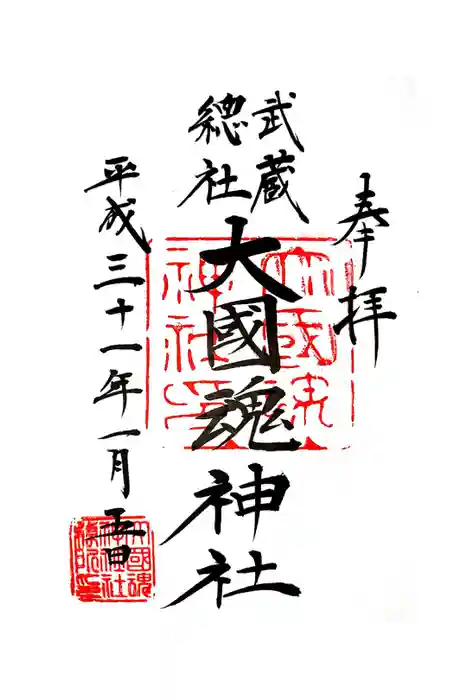 奉拝
武蔵
總社
大國魂神社
平成三十一年一月五日